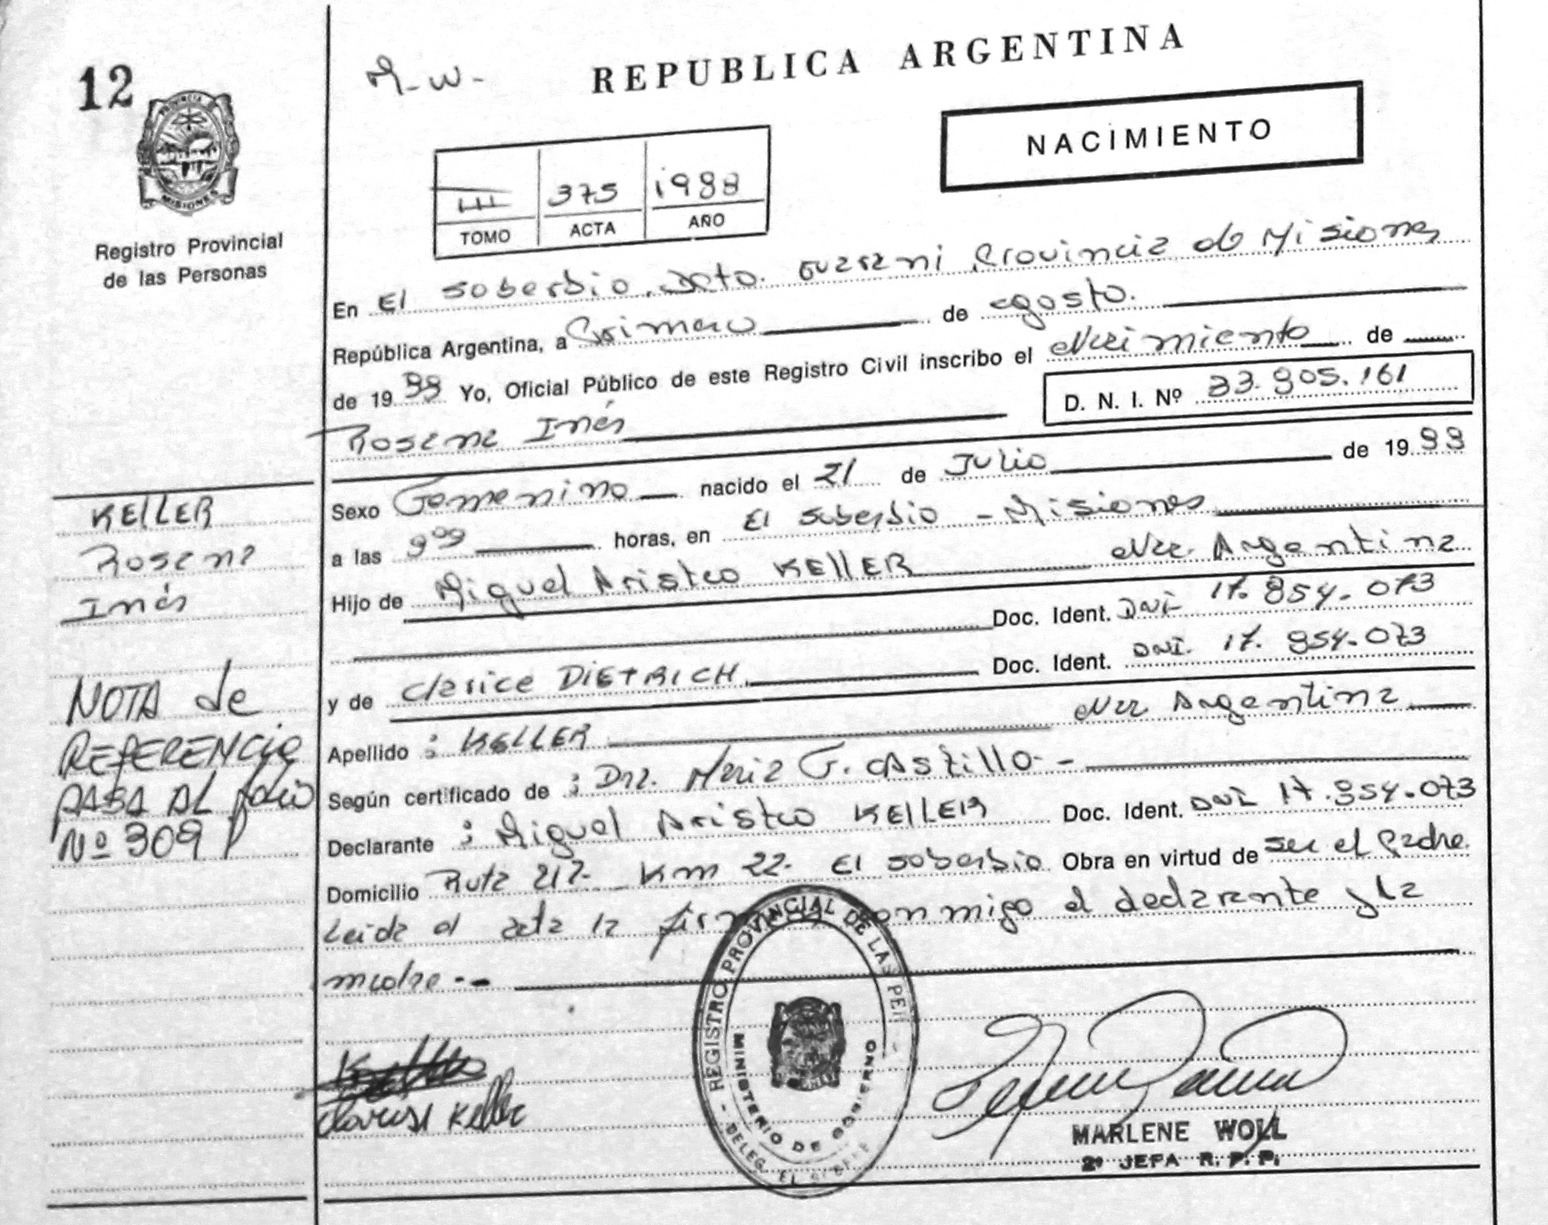 12
M-W-
REPUBLICA ARGENTINA
PROVINCIA DE
MISIONES
Registro Provincial
de las Personas
NACIMIENTO
III 375 1988
TOMO ACTA AÑO
En El Soberbio, Dpto. Guarani Provincia de Misiones
República Argentina, a Primero de agosto.
de 19 88 Yo, Oficial Público de este Registro Civil inscribo el Nacimiento de
D. N. I. Nº 33.905.161
Rosana Inés
Sexo Femenino nacido el 21 de Julio de 19 88
a las 9 horas, en El Soberbio - Misiones
Hijo de Miguel Aristeo KELLER Nac. Argentina
Doc. Ident. DNI 17.854.073
y de Clarice DIETRICH Doc. Ident. DNI. 17.954.073
Nac Argentina
Apellido : KELLER
Según certificado de : Dra. Maria G. CAStillo. -
Declarante : Miguel Aristeo KELLER Doc. Ident. DNI 17.954.073
Domicilio Ruta 212- Km 22- El Soberbio Obra en virtud de ser el Padre.
Leida el acta la firma conmigo el declarante y la
madre.--
KELLER
Rosana
Inés
NOTA de
REFERENCIA
PASA AL folio
Nº 309 P
REGISTRO PROVINCIAL DE LAS PER
MINISTERIO DE GOBIERNO
DELEG. EL
Keller
MARLENE WOLL
2º JEFA R. P. P.